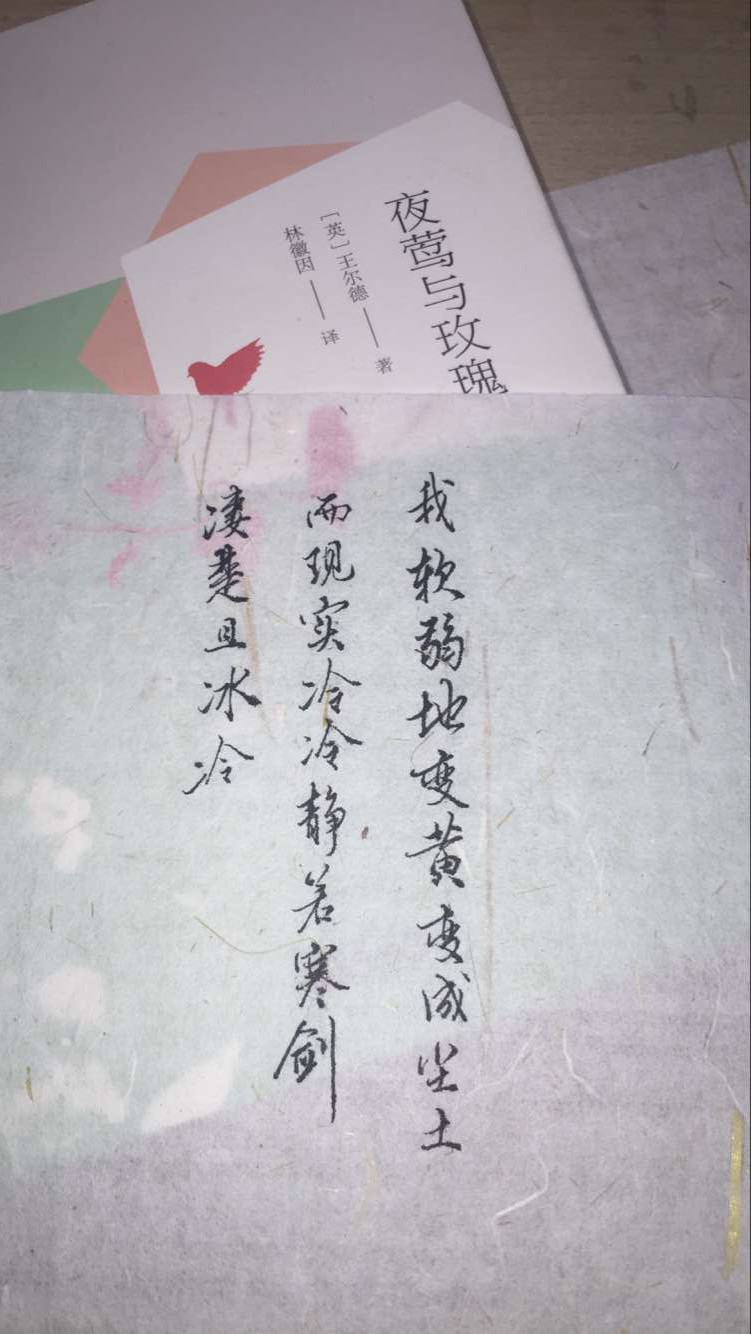 夜莺与玫瑰
[英]王尔德——著
林徽因——译
我软弱地变黄变成尘土
而现实冷冷静若寒剑
凄楚且冰冷